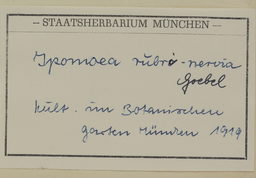 – STAATSHERBARIUM MÜNCHEN –
Ipomoea rubri-nervia
Goebel
kult. im Botanischen
Garten München 1919